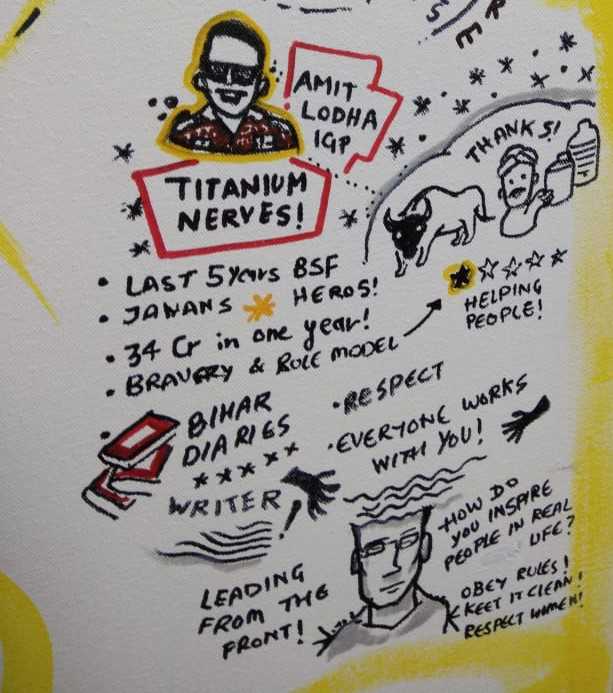 S
R
E
AMIT
LODHA
IGP
THANKS!
TITANIUM
NERVES!
• LAST 5 Years BSF
• JAWANS HEROS!
• 34 Cr in one year!
• BRAVERY & ROLE MODEL
HELPING
PEOPLE!
BIHAR
DIARIES
WRITER
• RESPECT
• EVERYONE WORKS
WITH YOU!
HOW DO
YOU INSPIRE
PEOPLE IN REAL
LIFE?
LEADING
FROM THE
FRONT!
OBEY RULES!
KEET IT CLEAN!
RESPECT WOMEN!